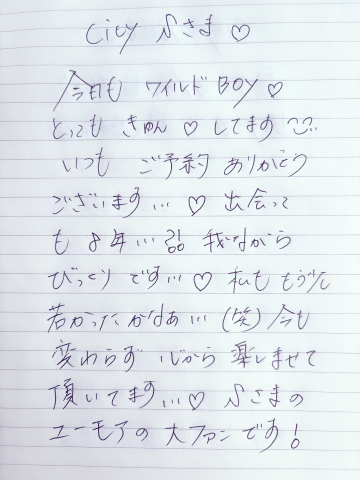 City Sさま♡
今日も ワイルド BOY♡
とっても きゅん♡してます
いつも ご予約 ありがとう
ございます…♡ 出会って
も 8年…!? 我ながら
びっくり です…♡ 私も もう少し
若かったかなぁ…(笑)今も
変わらず 心から 楽しませて
頂いてます…♡ Sさまの
ユーモアの 大ファンです!